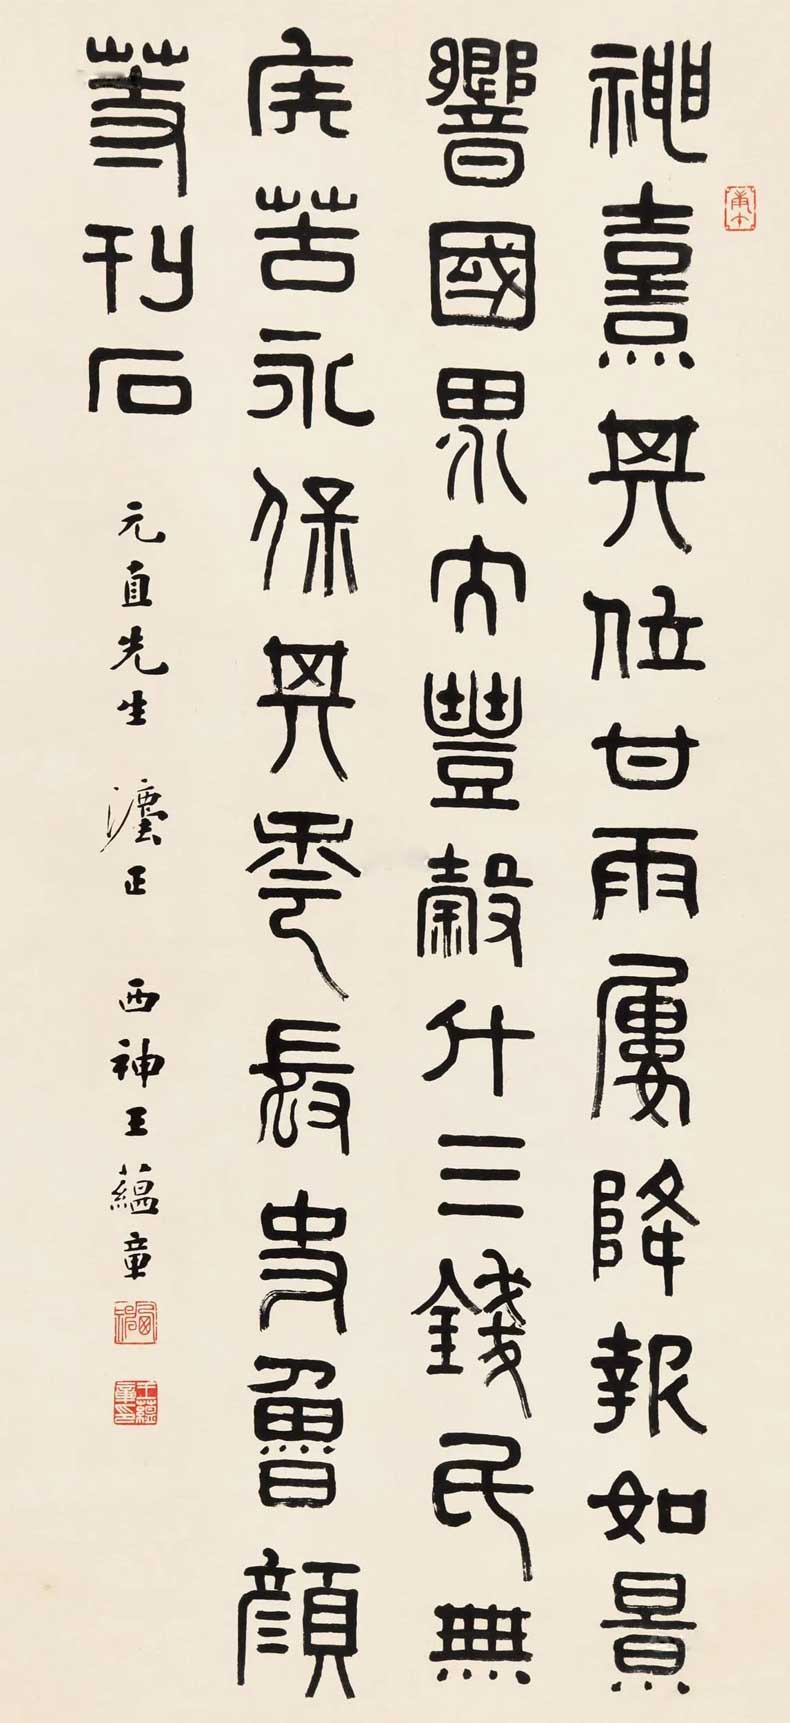 神熹其位甘雨屢降報如景
響國界大豐穀斗三錢民無
疾苦永保其年長史魯顏
等刊石
元直先生 灋正 西神王蘊章
王蘊章印